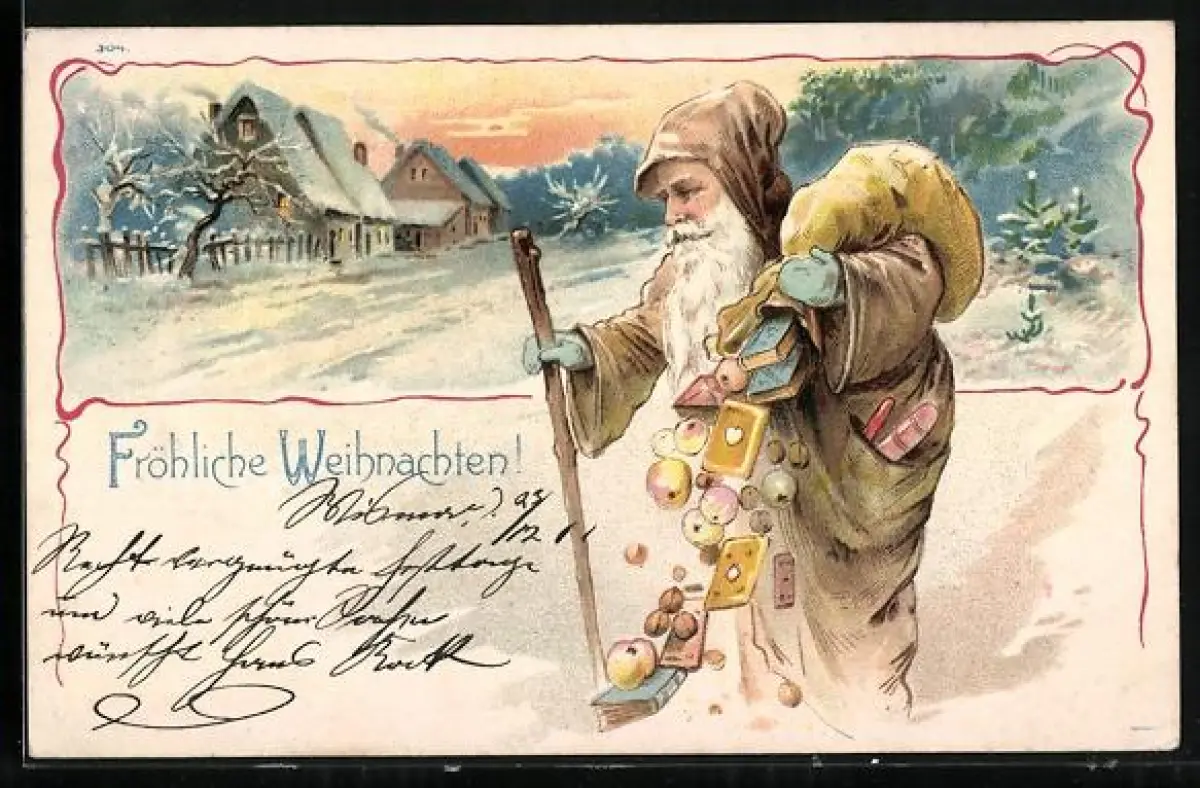 304.
Fröhliche Weihnachten!
Wismar, 23/12 01
Recht vergnügte Festtage
und viele schöne Sachen
wünscht Hans Kock